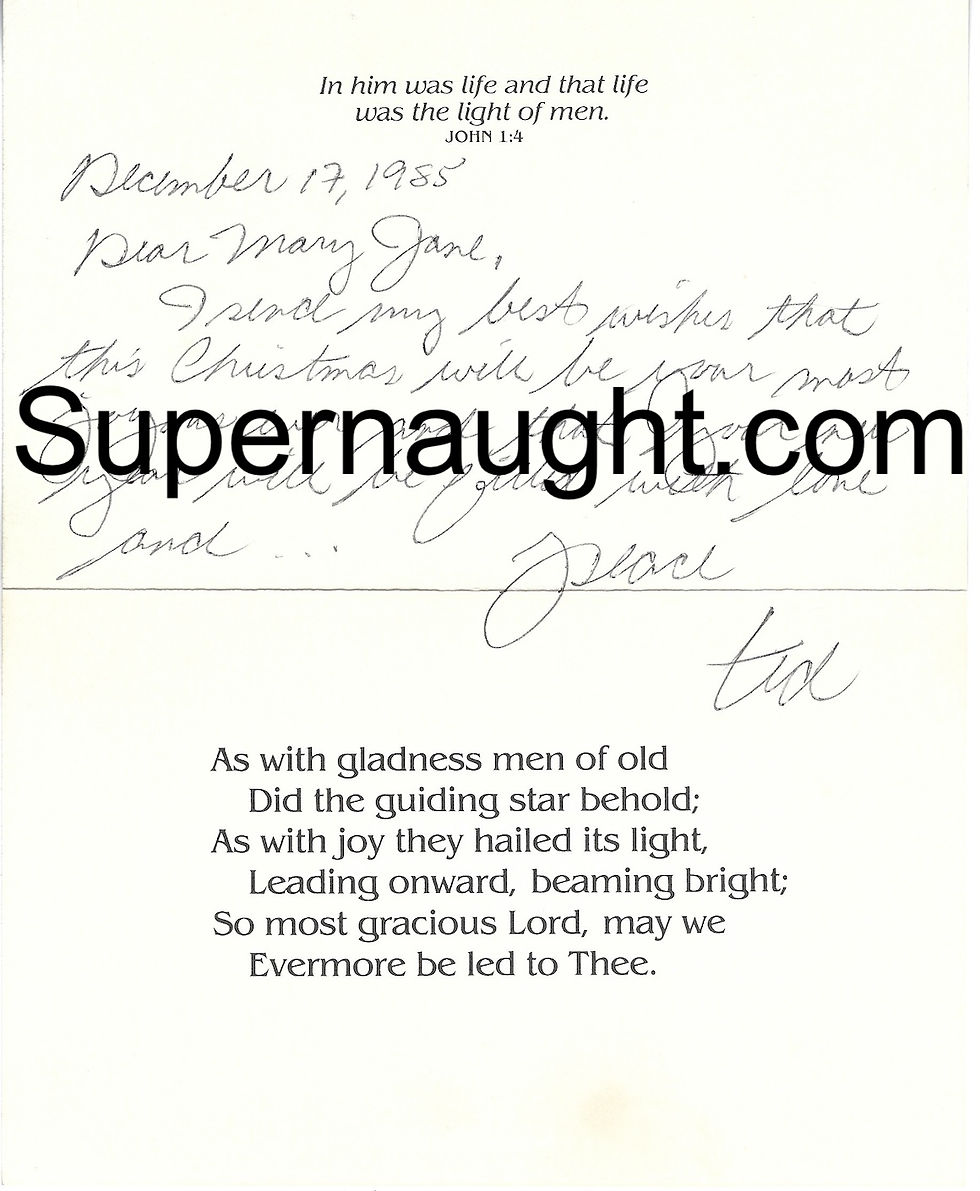 In him was life and that life
was the light of men.
JOHN 1:4
December 17, 1985
Dear Mary Jane,
I send my best wishes that
this Christmas will be your most
Supernaught.com
joyous ever and that your new
year will be filled with love
and ...
peace
ted
As with gladness men of old
Did the guiding star behold;
As with joy they hailed its light,
Leading onward, beaming bright;
So most gracious Lord, may we
Evermore be led to Thee.